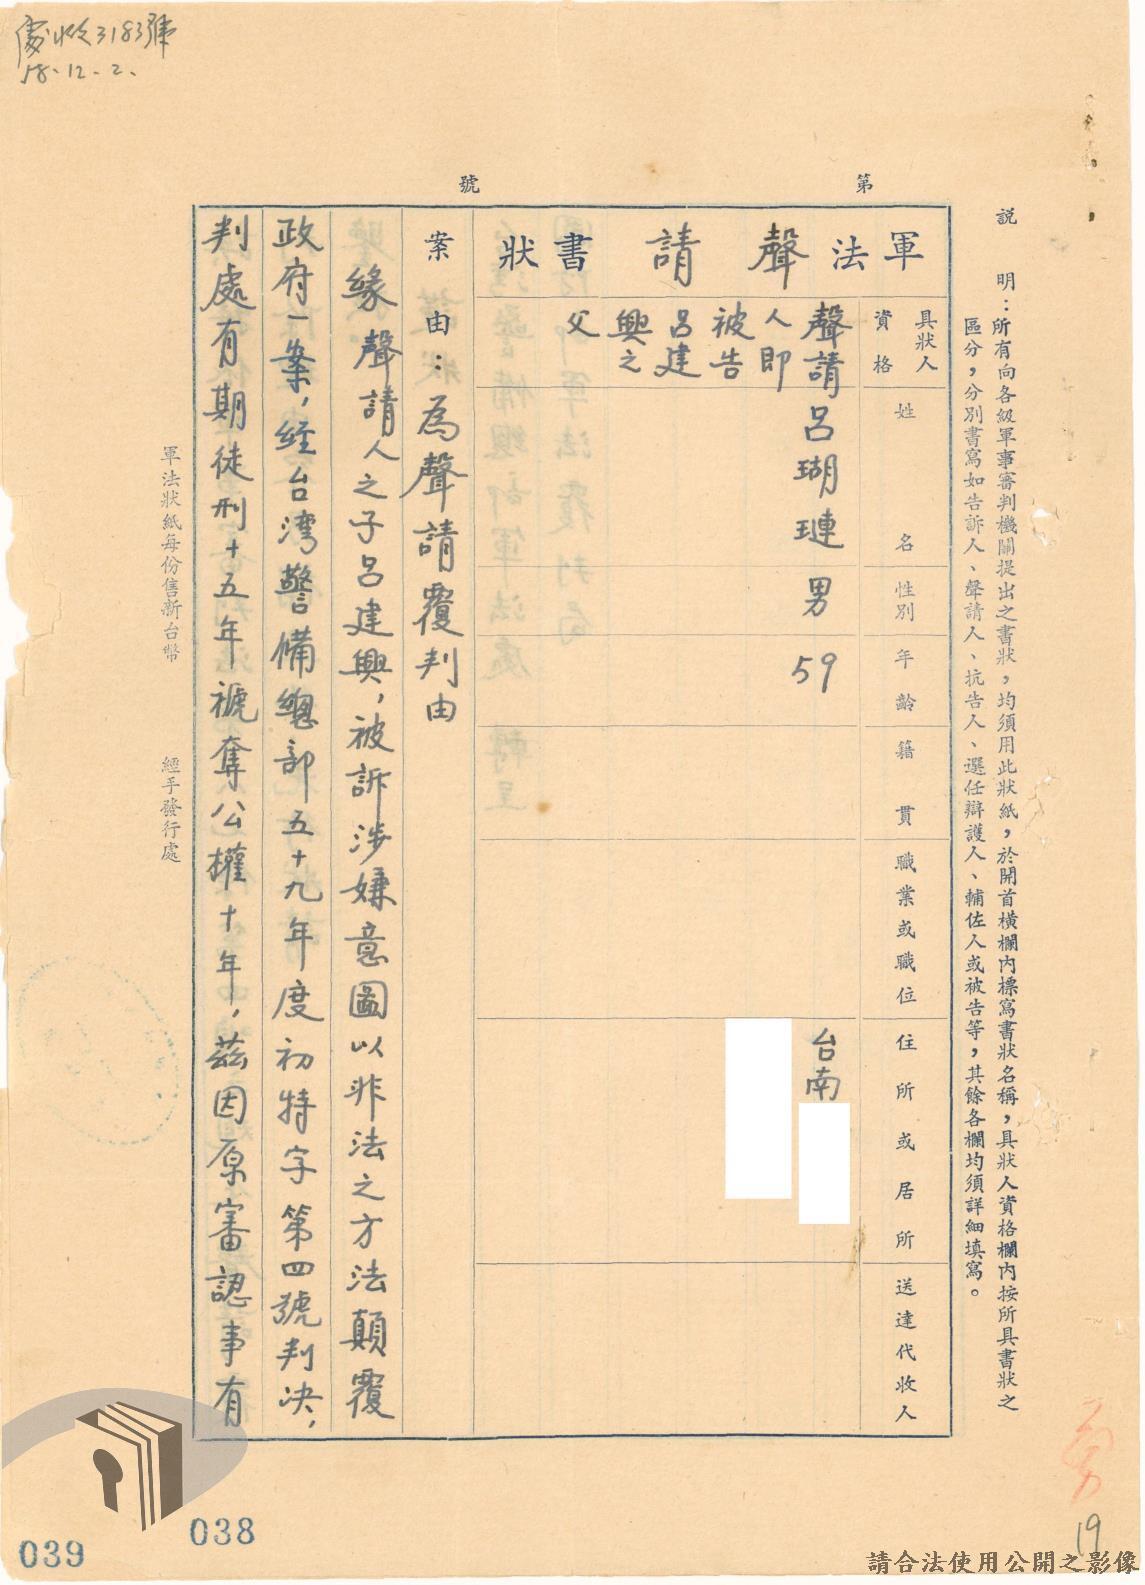 處收3183號
58.12.2.
第　號
說　明：所有向各級軍事審判機關提出之書狀，均須用此狀紙，於開首橫欄內標寫書狀名稱，具狀人資格欄內按所具書狀之
區分，分別書寫如告訴人、聲請人、抗告人、選任辯護人、輔佐人或被告等，其餘各欄均須詳細填寫。
軍法聲請書狀
具狀人
資格
姓名
性別
年齡
籍貫
職業或職位
住所或居所
送達代收人
聲請
人即
被告
呂建
興之
父
呂瑚璉
男
59
台南
案由：為聲請覆判由
緣聲請人之子呂建興，被訴涉嫌意圖以非法之方法顛覆
政府一案，經台湾警備總部五十九年度初特字第四號判决，
判處有期徒刑十五年褫奪公權十年，茲因原審認事有
軍法狀紙每份售新台幣　經手發行處
19
038
039
請合法使用公開之影像